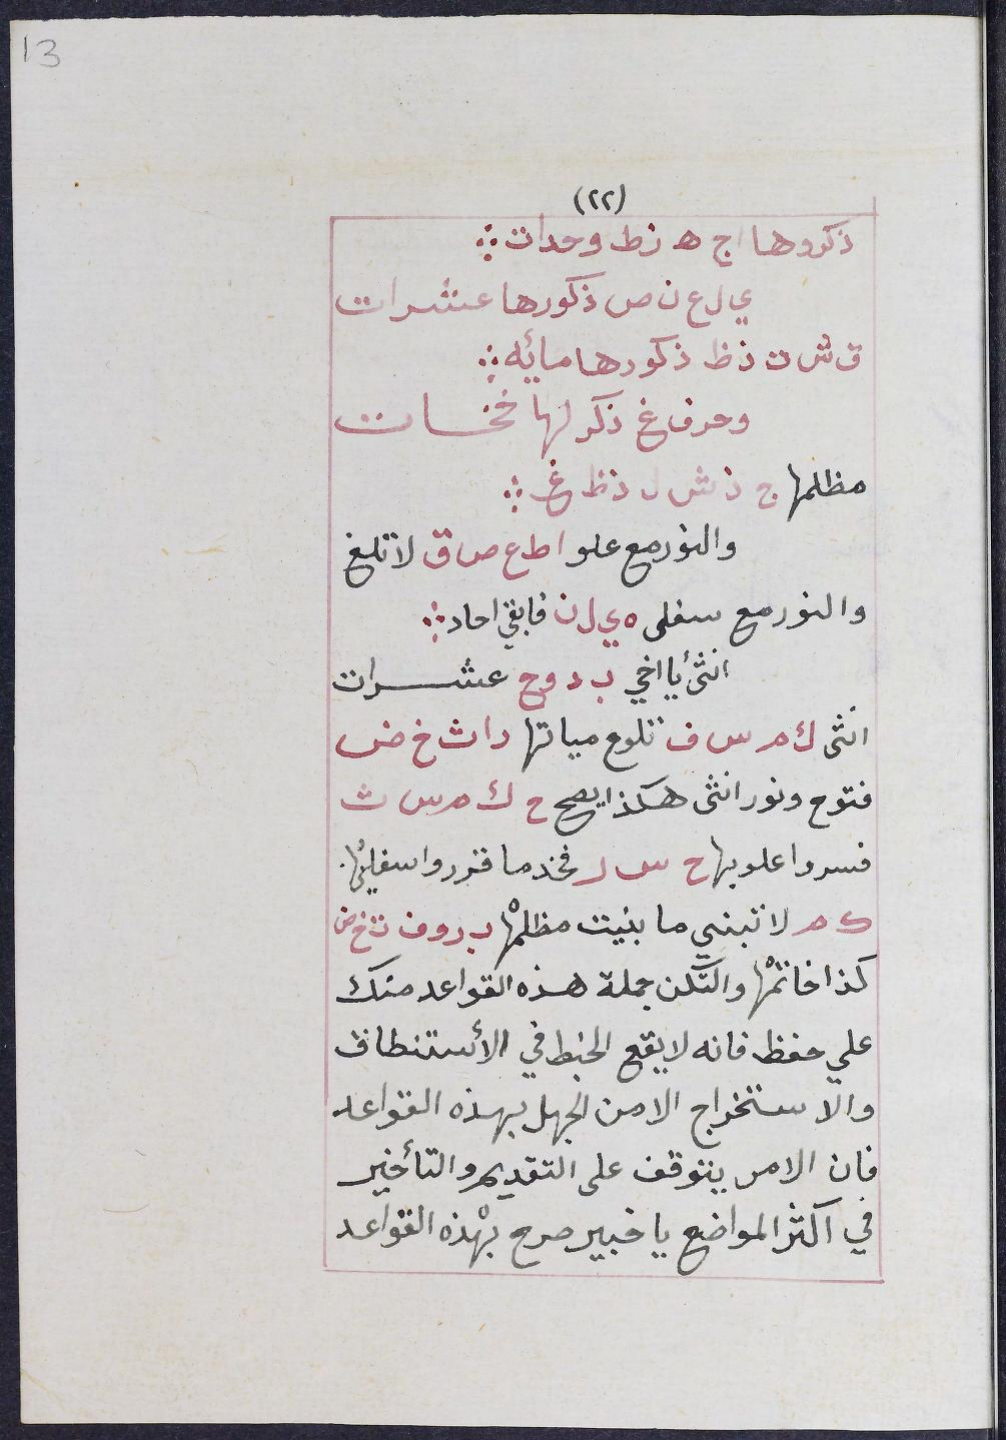 13
(٢٢)
ذكروها اج ه زط وحدات
ي ل ع ن ص ذكورها عشرات
ق ش ت ذ ظ ذكورها مائه
وحرف غ ذكر لها
مظلمها ج ذ ش ل ذ ظ غ
والنور مع علو ا ط ع ص ق لا تلغ
والنور مع سفلى ه ي ل ن فابقي احاد
انثى يا اخي ب د و ح عشرات
انثى ك م س ف تلوع مياتها راث خ ض
فتوح ونور انثى هكذا يصح ح ك م س ث
فسروا علويها ح س ر فخذ ما قرروا سفليها
ك م لا تبني ما بنيت مظلمها ب د و ف ث خ ض
كذا خاتمها والتكن جملة هذه القواعد منك
علي حفظ فانه لا يقع الخبط في الأستنطاق
والاستخراج الا من الجهل بهذه القواعد
فان الامر يتوقف على التقديم والتأخير
في اكثر المواضع يا خبير صرح بهذه القواعد